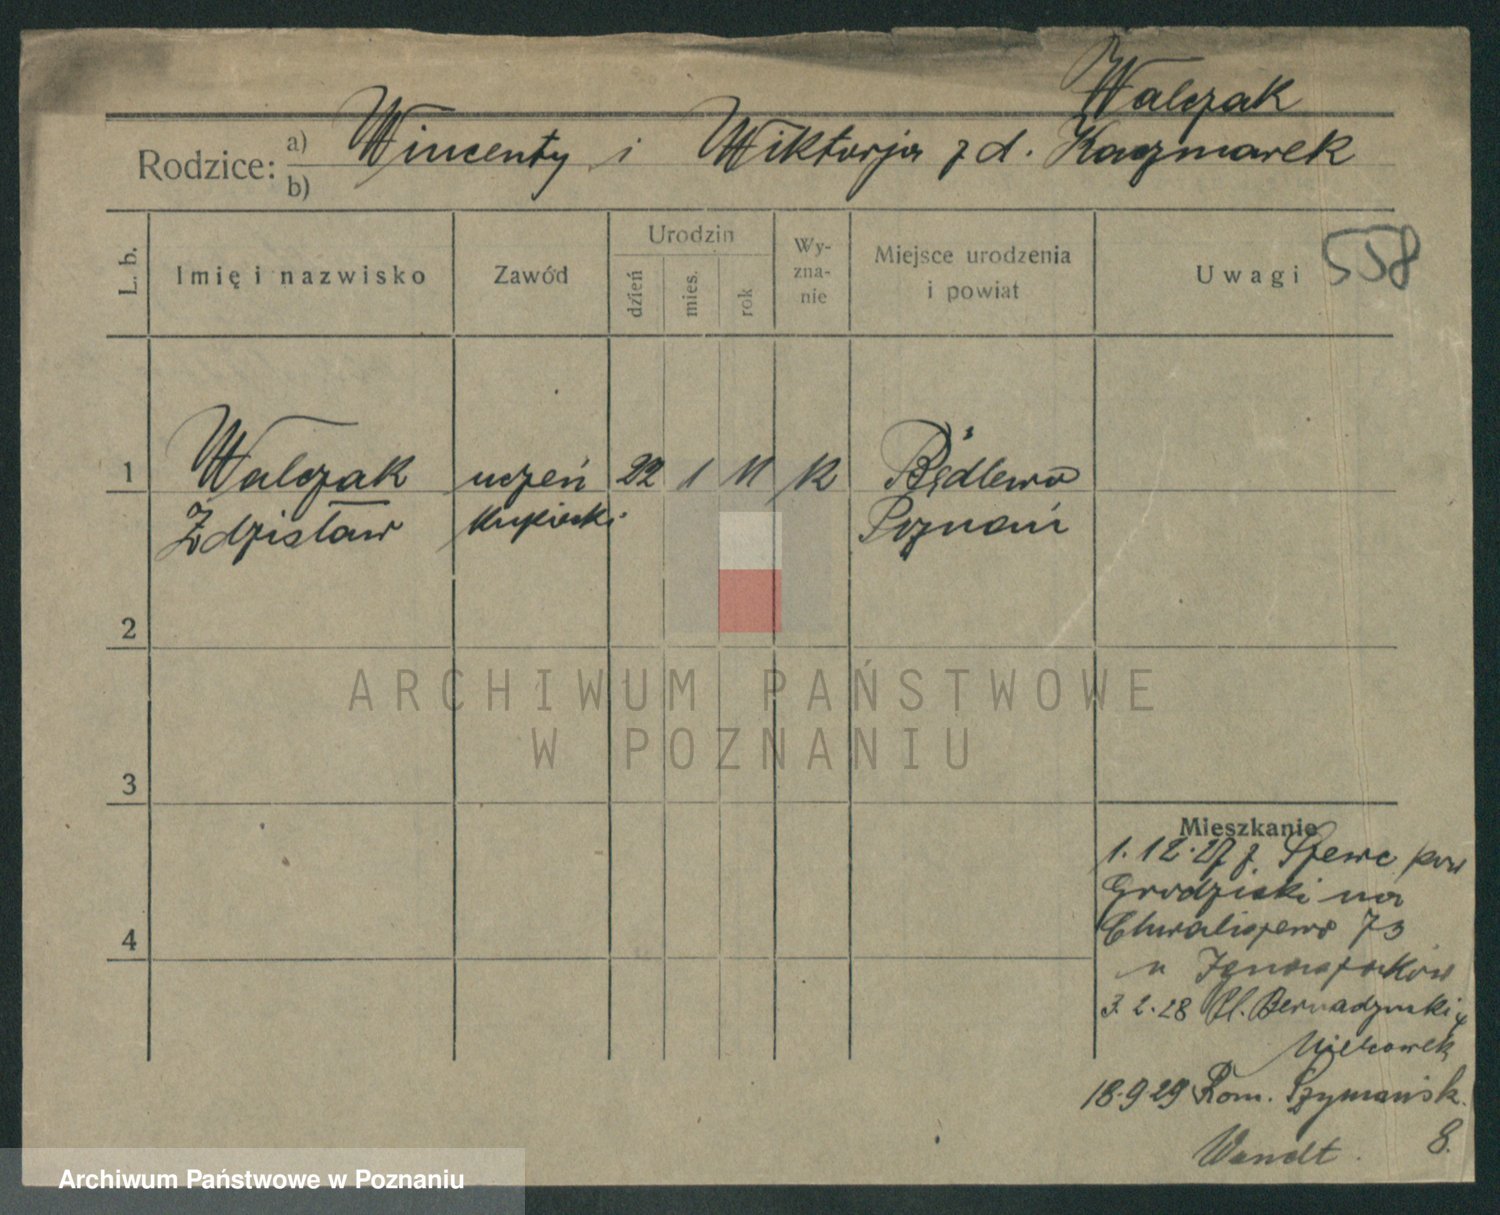 Walczak
Rodzice: a) Wincenty i Wiktorja z d. Kaczmarek
b)
L. b.
Imię i nazwisko
Zawód
Urodzin
dzień
mies.
rok
Wy-
zna-
nie
Miejsce urodzenia
i powiat
Uwagi
558
1 Walczak uczeń 22 1 11 k Będlewo
Zdzisław kupiecki Poznań
2
3
4
Mieszkanie
1.12.27 z Szewc pow
Grodziski na
Chwaliszewo 73
u
3.2.28 Pl. Bernadyński 4
18.9.29 Rom. Szymańsk.
Wandt. 8.
ARCHIWUM PAŃSTWOWE
W POZNANIU
Archiwum Państwowe w Poznaniu